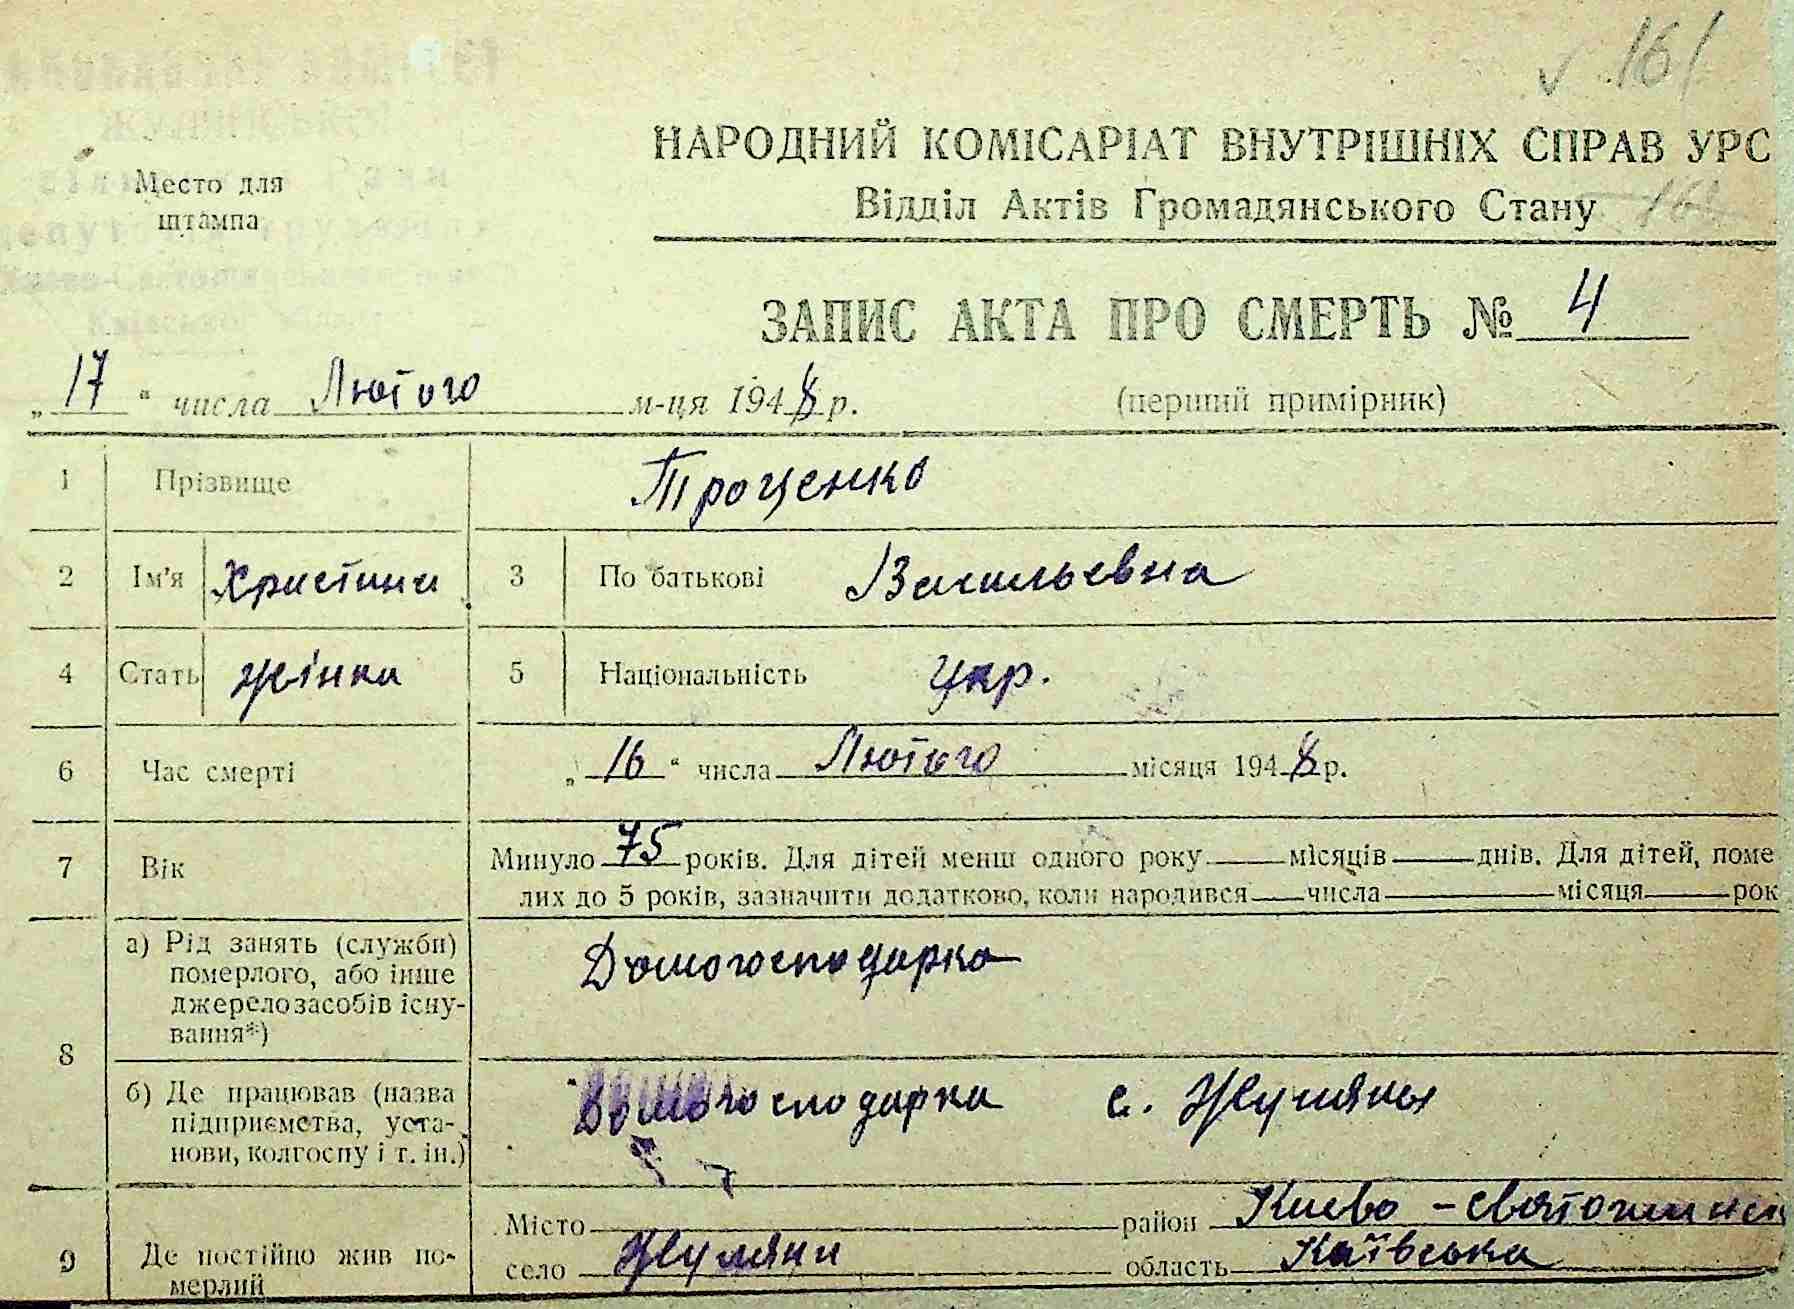 161
НАРОДНИЙ КОМІСАРІАТ ВНУТРІШНІХ СПРАВ УРС
Место для
штампа
Відділ Актів Громадянського Стану
ЗАПИС АКТА ПРО СМЕРТЬ № 4
„17“ числа Лютого м-ця 1948 р. (перший примірник)
1 Прізвище Троценко
2 Ім’я Христина 3 По батькові Васильевна
4 Стать жінка 5 Національність Укр.
6 Час смерті „16“ числа Лютого місяця 1948 р.
7 Вік Минуло 75 років. Для дітей менш одного року місяців днів. Для дітей, поме
лих до 5 років, зазначити додатково, коли народився числа місяця рок
8 а) Рід занять (служби)
померлого, або інше
джерело засобів існу-
вання*)
Домогосподарка
б) Де працював (назва
підприємства, уста-
нови, колгоспу і т. ін.)
Домогосподарка с. Жуляны
9 Де постійно жив по-
мерлий
Місто район Киево-святошинськ
село Жуляни область Київська